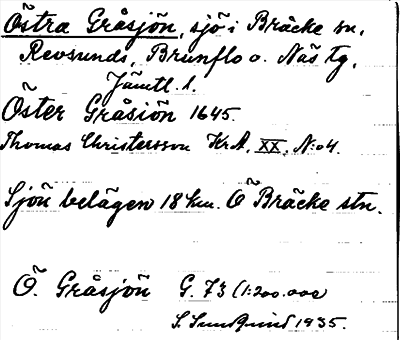 Östra Gråsjön, sjö i Bräcke sn,
Revsunds, Brunflo o. Näs tg,
Jämtl. l.
Öster Gråsiön 1645.
Thomas Christersson KrA, XX, N:o 4.
Sjön belägen 18 km. Ö Bräcke stn.
Ö. Gråsjön G. 73 (1:200.000)
S. Sundqvist 1935.